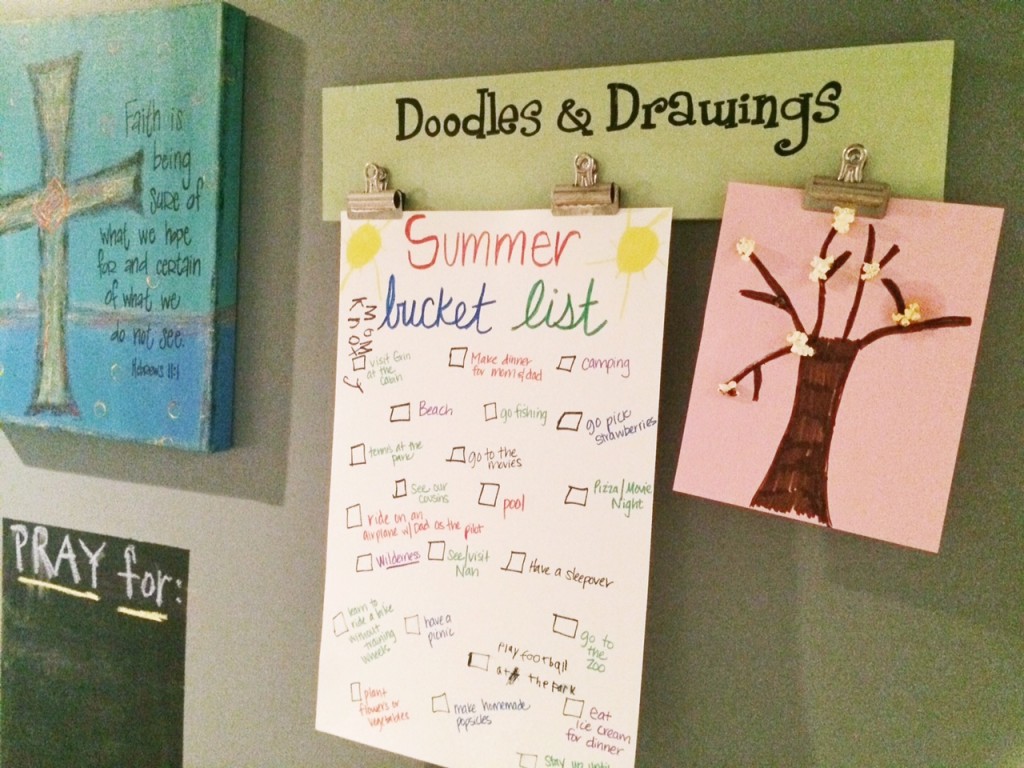 Faith is
being
sure of
what we hope
for and certain
of what we
do not see.
Hebrews 11:1
PRAY for:
Doodles & Drawings
Summer
bucket list
MoM
Knox
visit
at the
cabin
Make dinner
for mom & dad
camping
Beach
go fishing
go pick
strawberries
tennis at the
park
go to the
movies
see our
cousins
pool
Pizza/Movie
Night
ride on an
airplane w/ Dad as the pilot
Wilderness
See/visit
Nan
Have a sleepover
learn to
ride a bike
without
training
wheels
have a
picnic
go to
the
zoo
Play football
at the Park
plant
flowers or
vegetables
make homemade
popsicles
eat
ice cream
for dinner
Stay up until